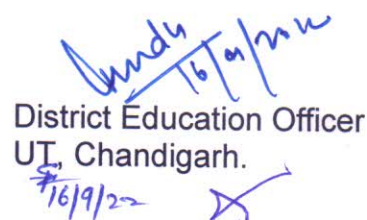 16/09/2022
District Education Officer
UT, Chandigarh.
16/9/22